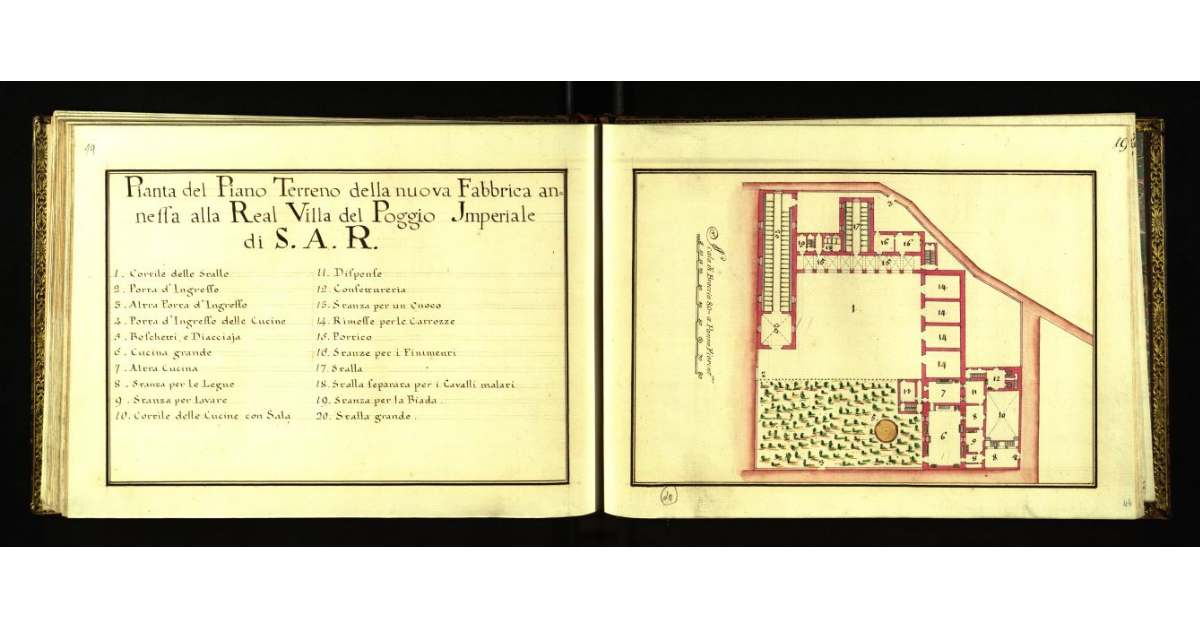 19
Pianta del Piano Terreno della nuova Fabbrica an=
neſſa alla Real Villa del Poggio Jmperiale
di S. A. R.
1. Cortile delle Stalle
2. Porta d'Ingreſſo
3. Altra Porta d'Ingreſſo
4. Porta d'Ingreſſo delle Cucine
5. Boſchetti, e Diacciaja
6. Cucina grande
7. Altra Cucina
8. Stanza per le Legne
9. Stanza per Lavare
10. Cortile delle Cucine con Sala
11. Diſpenſe
12. Confettureria
13. Stanza per un Cuoco
14. Rimeſſe per le Carrozze
15. Portico
16. Stanze per i Finimenti
17. Stalla
18. Stalla ſeparata per i Cavalli malati
19. Stanza per la Biada.
20. Stalla grande.
19
20
17
19
18
16
16
15
15
1
14
14
14
14
13
7
11
12
8
10
6
9
8
8
4
5
3
2
20
46